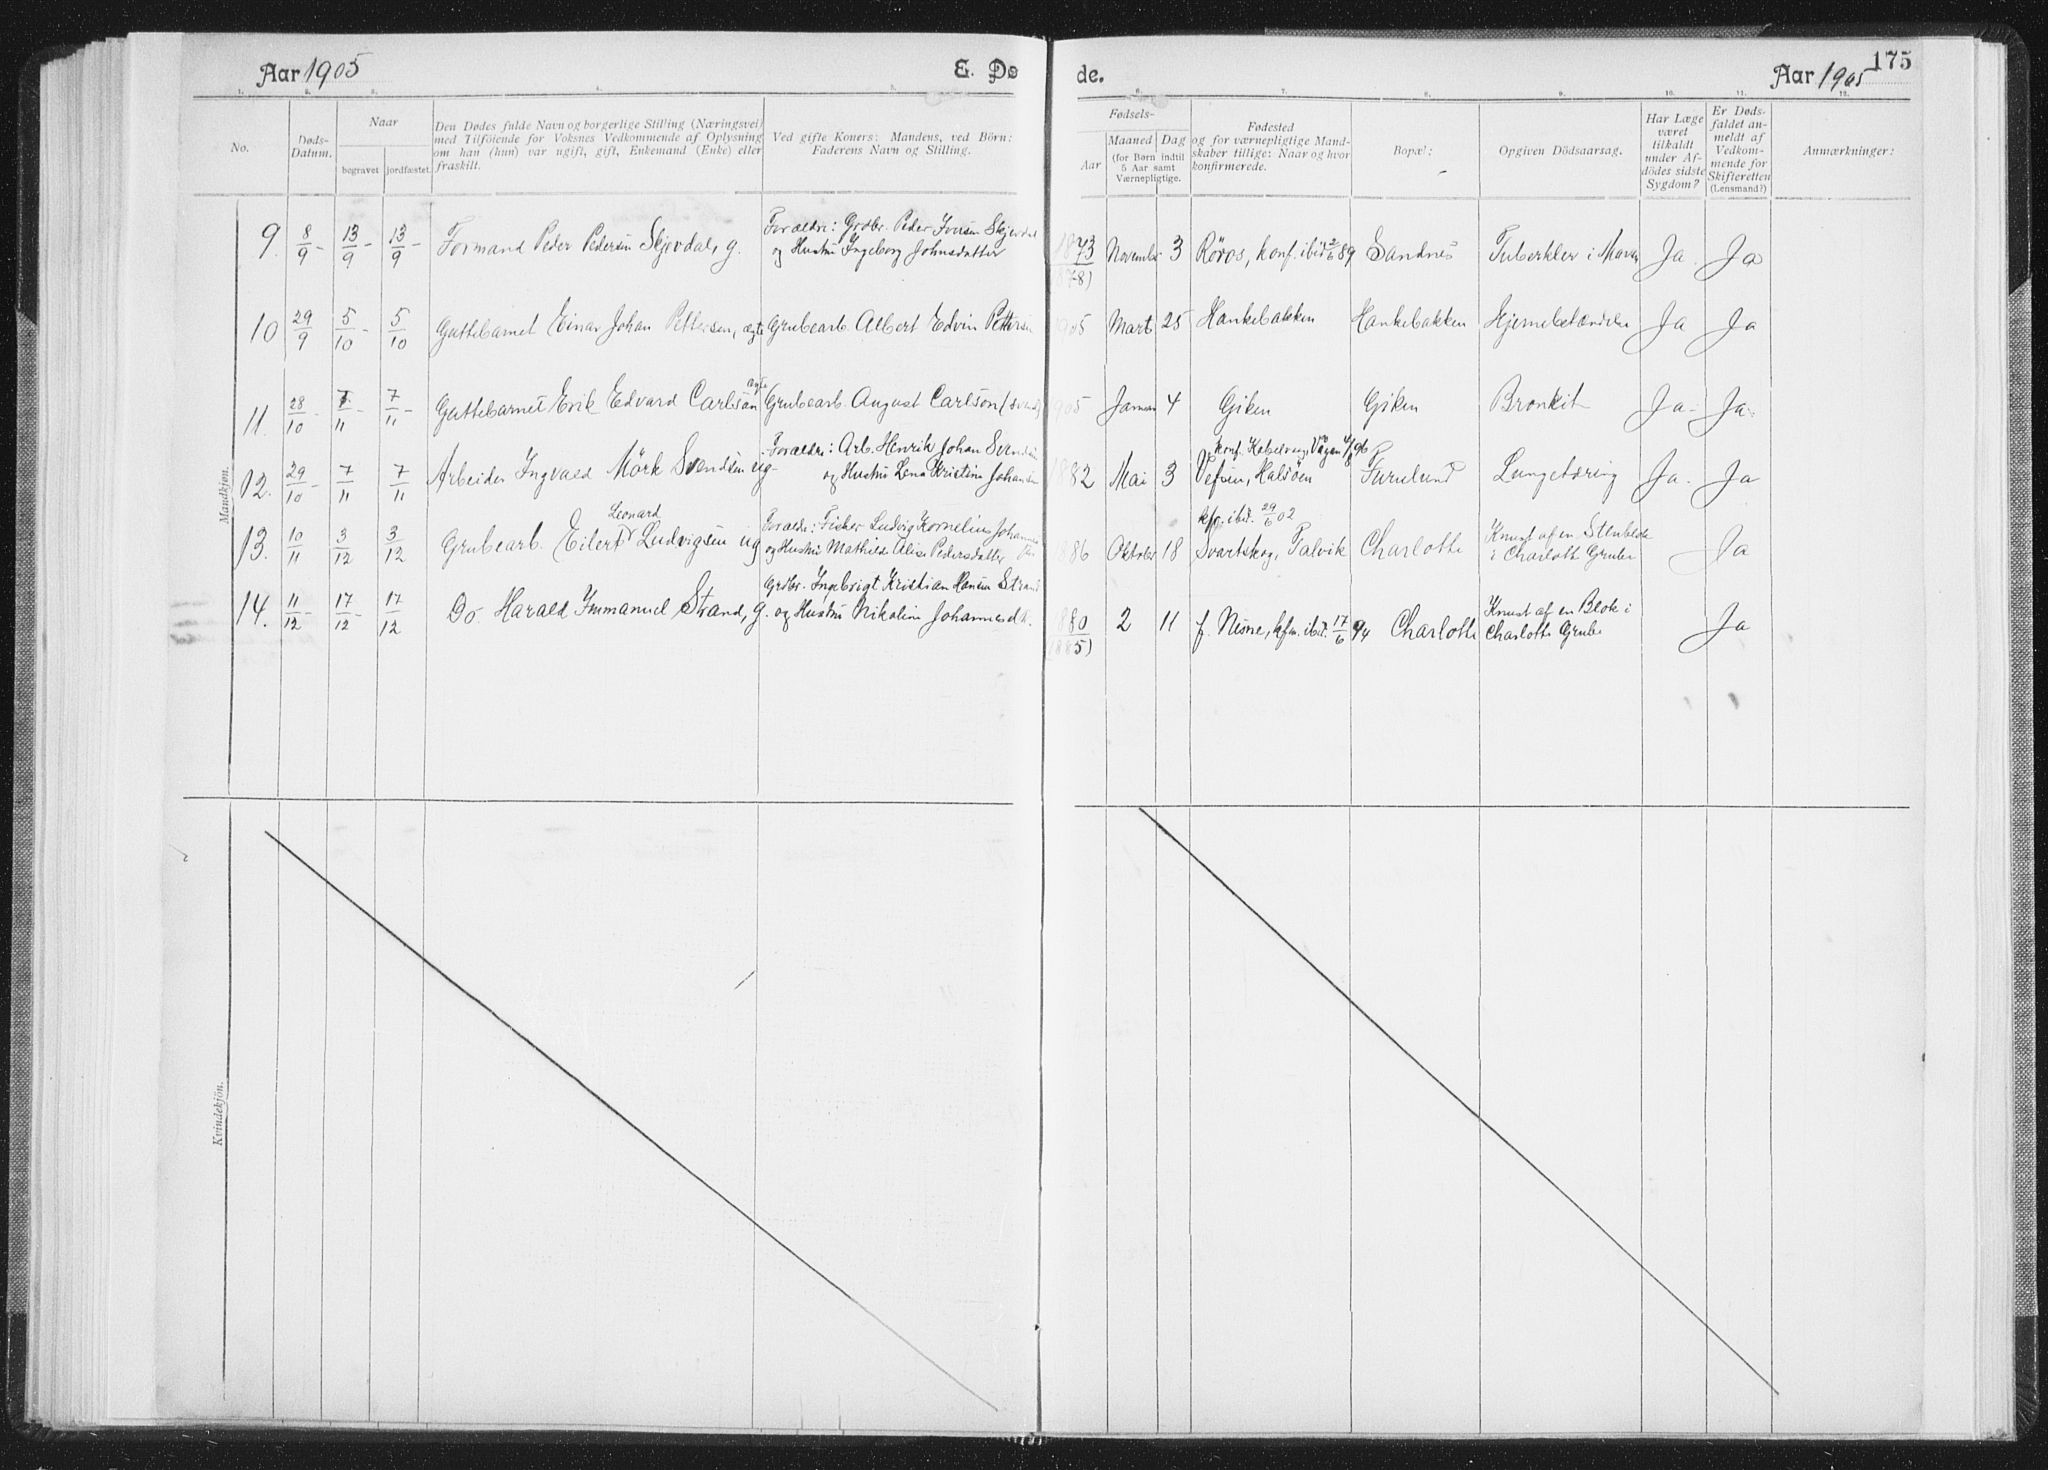 Aar 1905
E. Do
de.
Aar 1905
175
1. 2. 3. 4. 5. 6. 7. 8. 9. 10. 11. 12.
No.
Døds-
Datum.
Naar
begravet jordfæstet.
Den Dødes fulde Navn og borgerlige Stilling (Næringsvei)
med Tilföiende for Voksnes Vedkommende af Oplysning
om han (hun) var ugift, gift, Enkemand (Enke) eller
fraskilt.
Ved gifte Koners: Mandens, ved Börn:
Faderens Navn og Stilling.
Fødsels-
Aar
Maaned Dag
(for Børn indtil
5 Aar samt
Værnepligtige.
Fødested
og for værnepligtige Mand-
skaber tillige: Naar og hvor
konfirmerede.
Bopæl:
Opgiven Dödsaarsag.
Har Læge
været
tilkaldt
under Af-
dödes sidste
Sygdom?
Er Døds-
faldet an-
meldt af
Vedkom-
mende for
Skifteretten
(Lensmand?)
Anmærkninger:
Mandkjøn.
9. 8/9 - 13/9 - 13/9 - Formand Peder Pedersen Skjevdal, g.
Forældre: Grdbr. Peder Iversen Skjevdal
og Hustru Ingeborg Johnsdatter
1873 November 3 Röros, konf. ibid. 2/6 89 Sandnes Tuberkler i Maven Ja. Ja
(1878)
10 29/9 5/10 - 5/10 Guttebarnet Einar Johan Pettersen, ægte Grubearb. Albert Edvin Pettersen 1905 Mart 25 Hankebakken Hankebakken Hjernebetændelse Ja Ja
11. 28/10 - 7/11 - 7/11 - Guttebarnet Erik Edvard Carlson ægte Grubearb. August Carlson (svensk) 1905 Januar 4 Giken Giken Bronkit Ja. Ja.
12. 29/10 - 7/11 7/11 Arbeider Ingvald Mörk Svendsen ug.
Forældre: Arb. Henrik Johan Svendsen
og Hustru Lena Kristine Johansen
konf. Kabelvaag, Vågan 4/6 96
1882 Mai 3 Vefsen, Halsöen Furulund Lungetæring Ja. Ja
13. 10/11 3/12 3/12 Grubearb. Eilert Leonard Ludvigsen ug
Forældre: Fisker Ludvig Kornelius Johannes
og Hustru Mathilde Alise Pedersdatter
kfr. ibid. 29/6 02
1886 Oktober 18 Svartskog, Talvik Charlotte
Knust af en Stenblok
i Charlotte Grube
Ja
14. 11/12 - 17/12 - 17/12 Do. Harald Immanuel Strand, g.
Grdbr. Ingebrigt Kristian Hansen Strand
og Hustru Nikoline Johannesd.
1880 2 11 f. Nesne, kfm. ibid. 17/6 94 Charlotte
(1885)
Knust af en Blok i
Charlotte Grube
Ja
Kvindekjön.